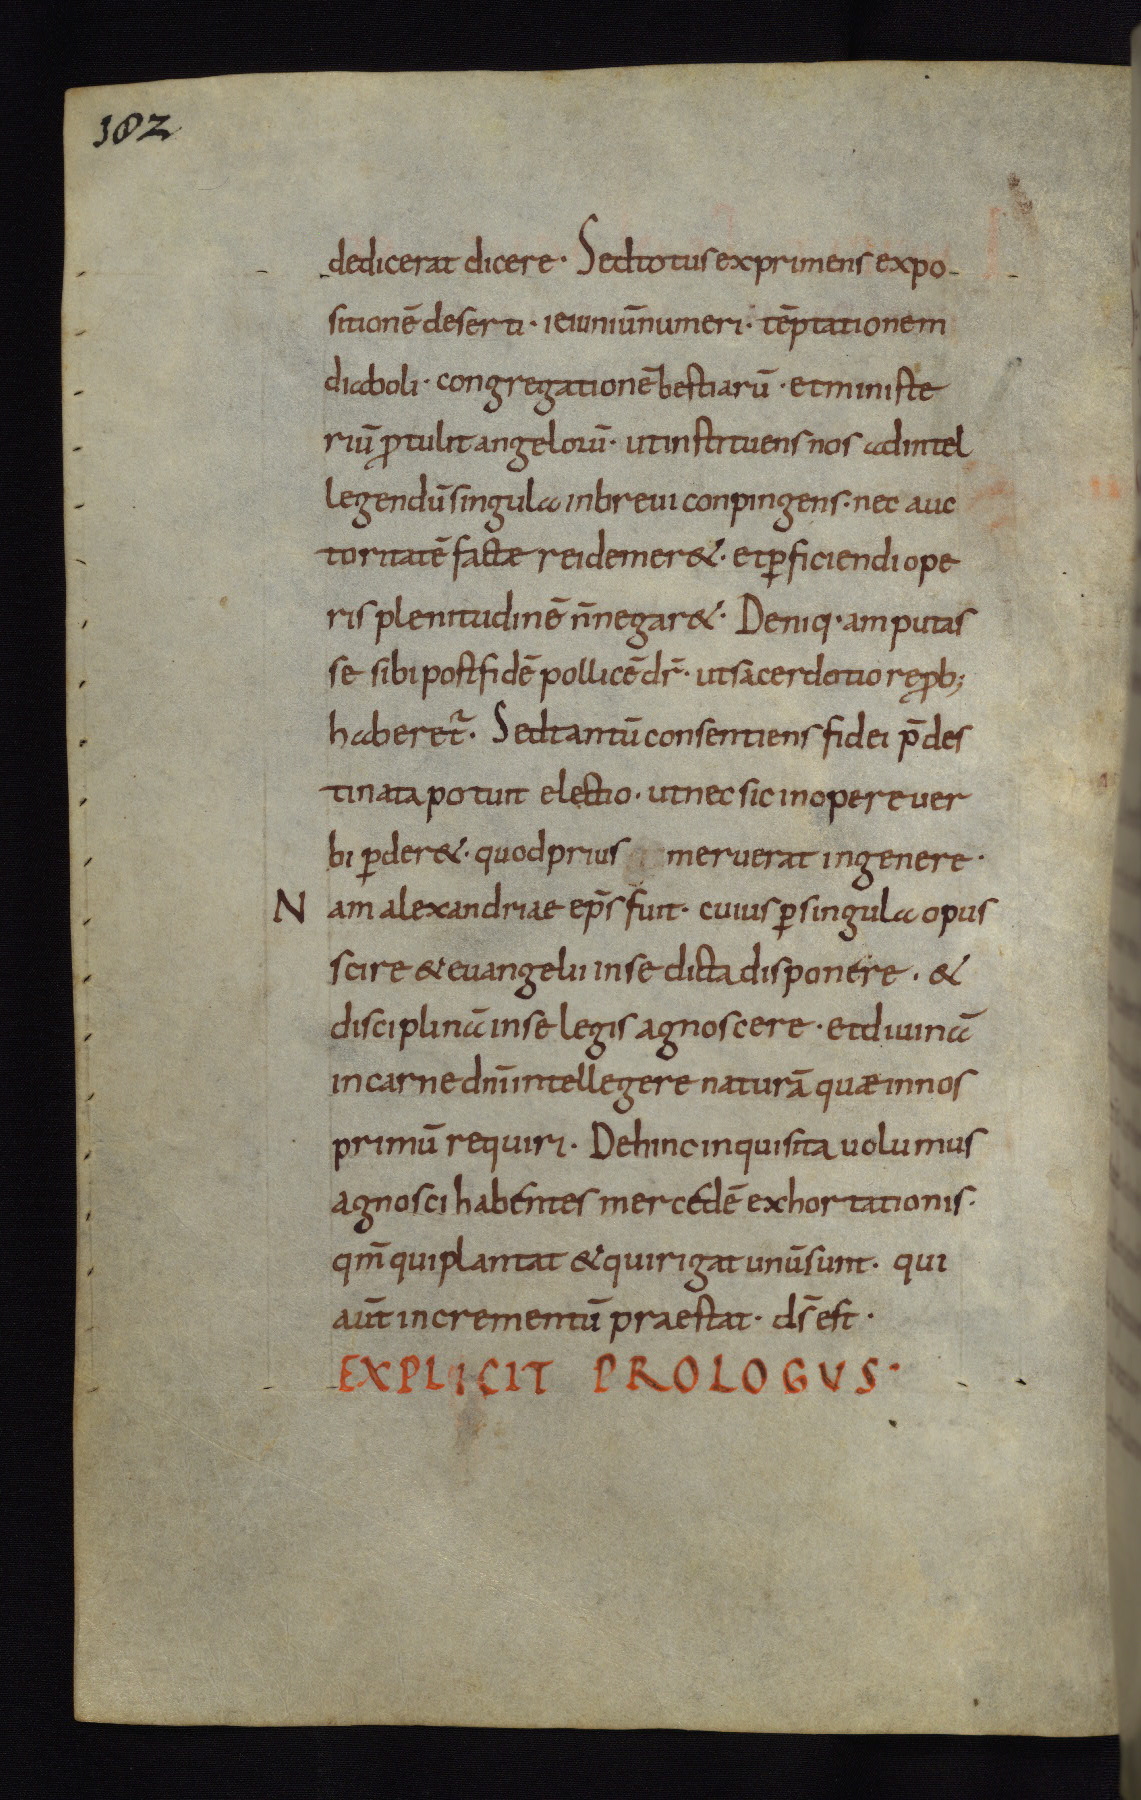 182
dedicerat dicere · Sed totus exprimens expo
sitionē deserti · ieiuniū numeri · tēptationem
diaboli · congregationē bestiarū · et ministe
riū ꝓtulit angeloꝝ · ut instituens nos ad intel
legendū singula in breui conpingens · nec auc
toritatē factae rei demer& · et ꝑficiendi ope
ris plenitudinē n̄ negar& · Deniq · amputas
se sibi post fidē pollicē dr̄ · ut sacerdotio reꝓb;
haberet᷑ · Sed tantū consentiens fidei p̄des
tinata potuit electio · ut nec sic in opere uer
bi ꝑder& · quod prius meruerat in genere ·
Nam alexandriae ep̄s fuit · cuius ꝑ singula opus
scire & euangelii in se dicta disponere · &
disciplinā in se legis agnoscere · et diuinā
in carne dn̄i intellegere naturā quae in nos
primū requiri · Dehinc inquisita uolumus
agnosci habentes mercedē exhortationis ·
qm̄ qui plantat & qui rigat unū sunt · qui
aūt incrementū praestat · ds̄ est ·
EXPLICIT PROLOGVS ·